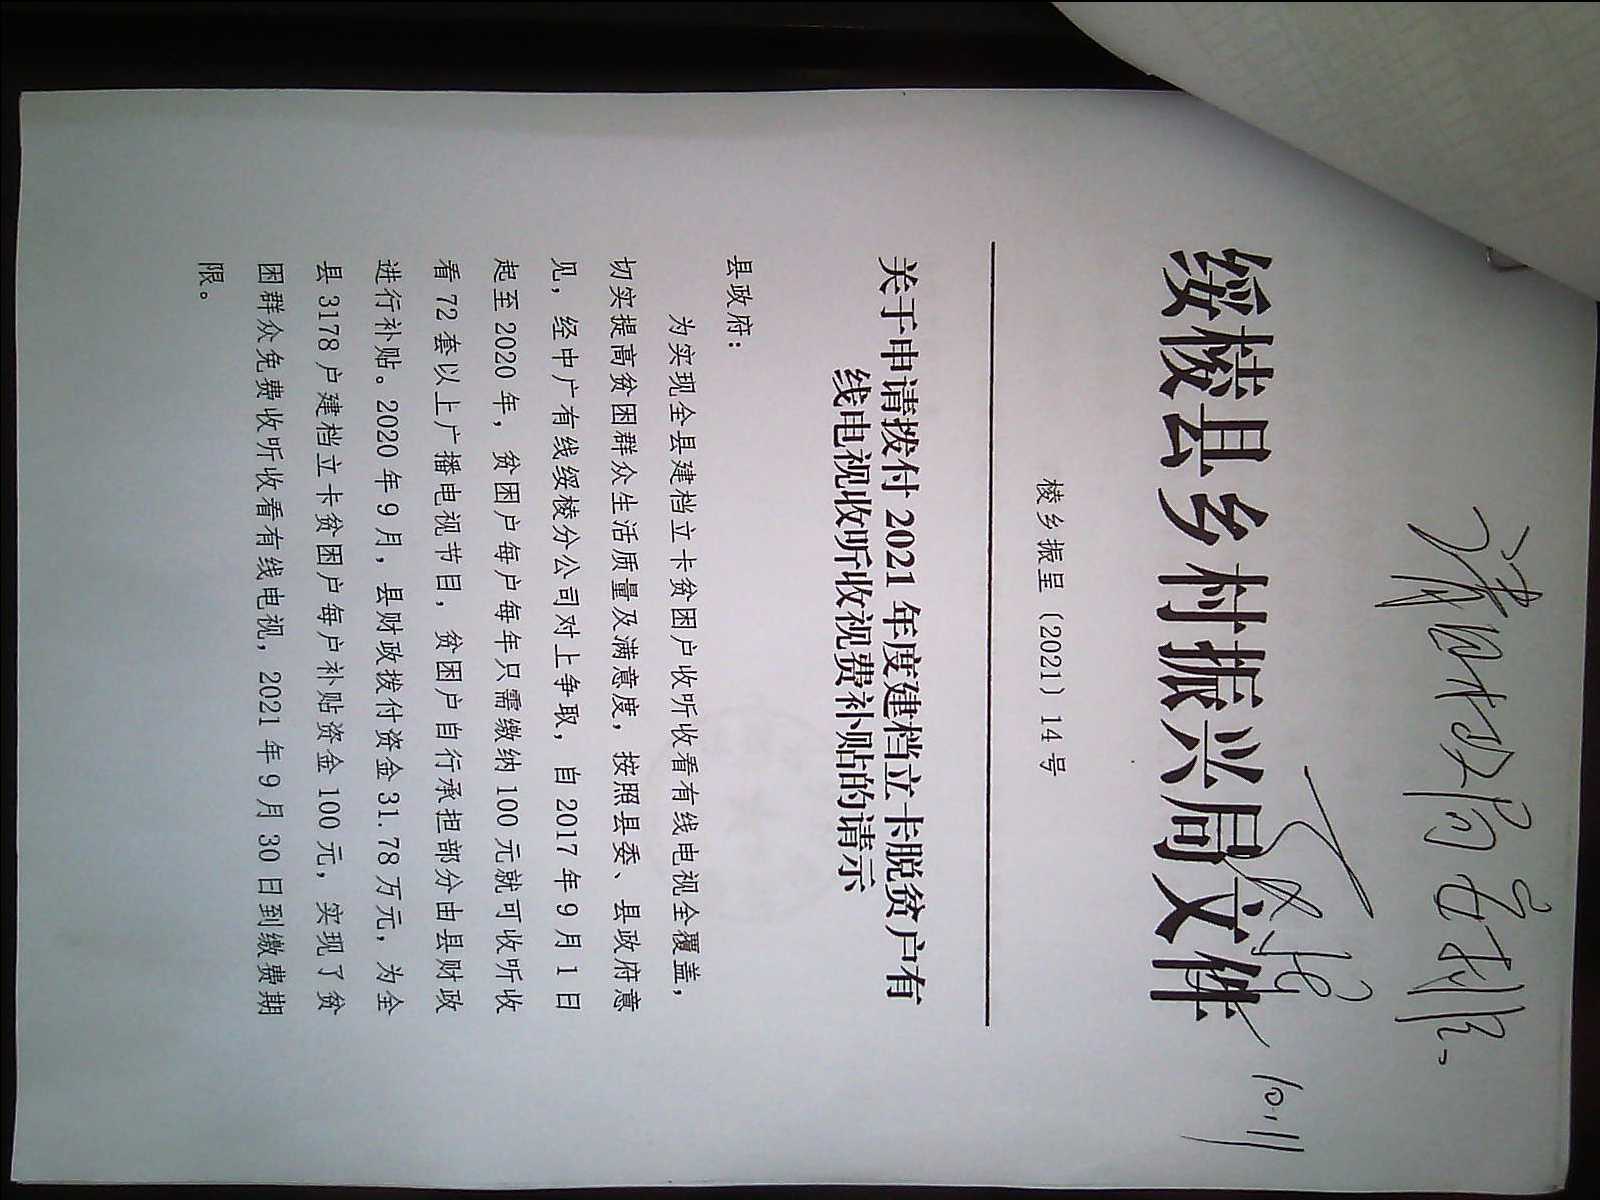 请财政局安排。
10.11
绥棱县乡村振兴局文件
棱乡振呈〔2021〕14号
关于申请拨付2021年度建档立卡脱贫户有
线电视收听收视费补贴的请示
县政府：
为实现全县建档立卡贫困户收听收看有线电视全覆盖，
切实提高贫困群众生活质量及满意度，按照县委、县政府意
见，经中广有线绥棱分公司对上争取，自2017年9月1日
起至2020年，贫困户每户每年只需缴纳100元就可收听收
看72套以上广播电视节目，贫困户自行承担部分由县财政
进行补贴。2020年9月，县财政拨付资金31.78万元，为全
县3178户建档立卡贫困户每户补贴资金100元，实现了贫
困群众免费收听收看有线电视，2021年9月30日到缴费期
限。